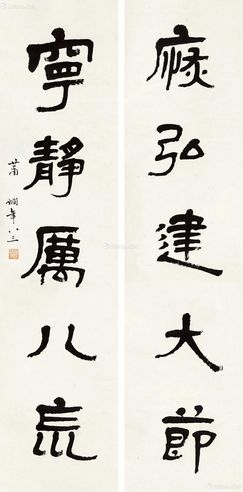 弘建大節
寧靜厲八巟
蕭嫻年八三